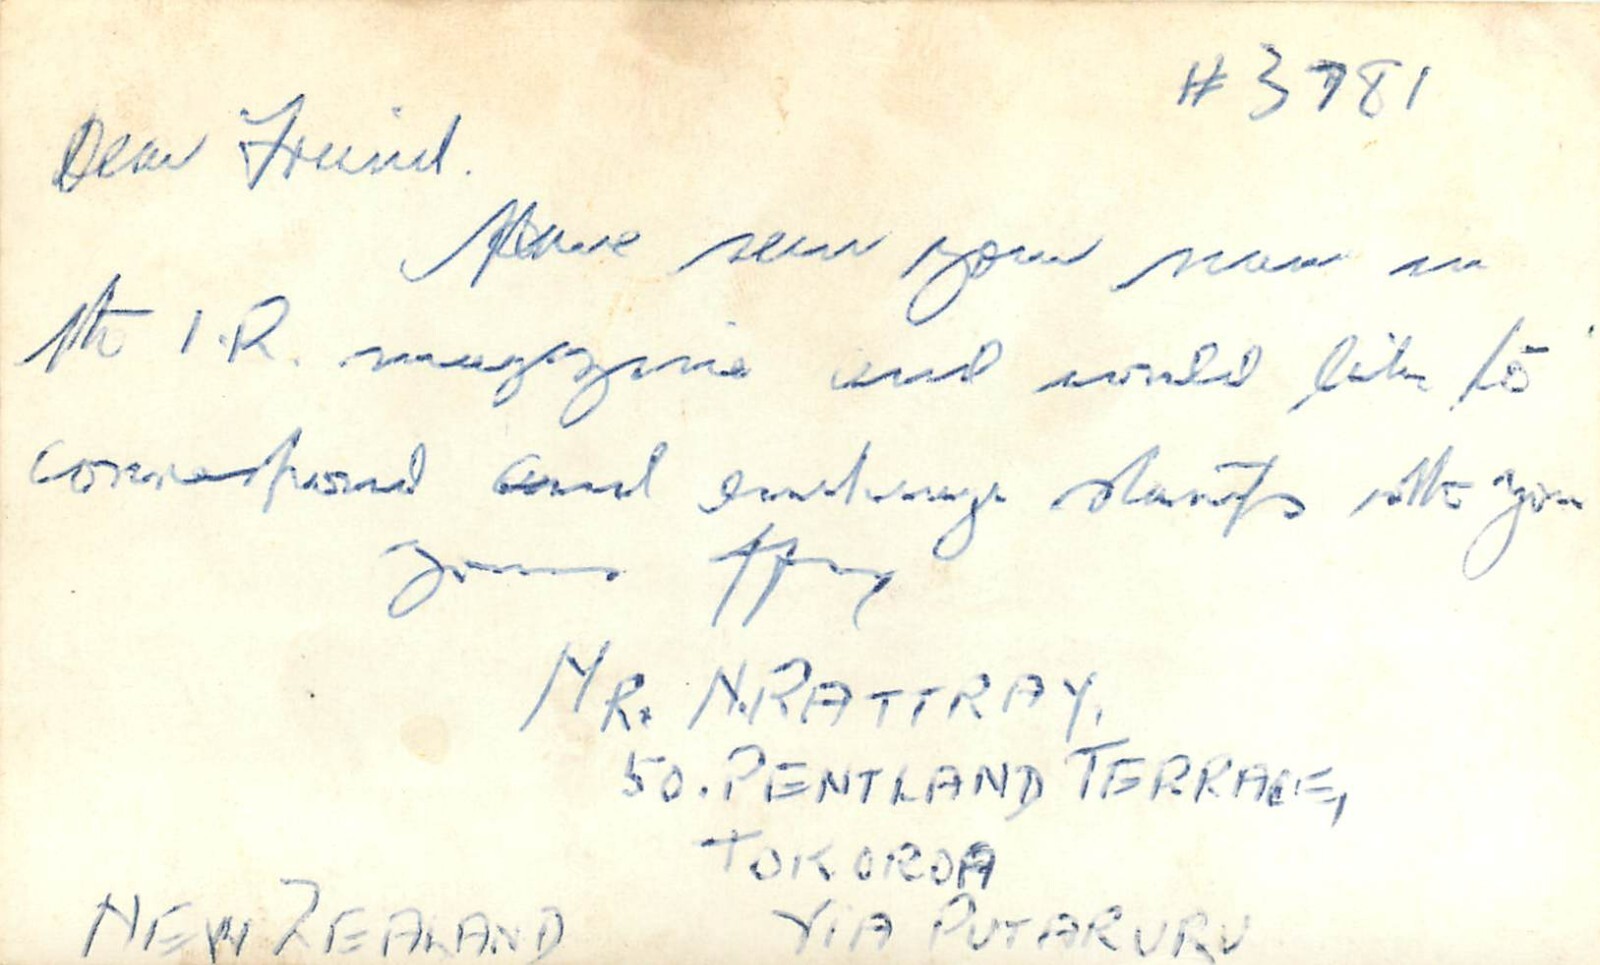 #3781
Dear Friend.
Have seen your name in
the I.R. magazine and would like to
correspond and exchange stamps with you
yours
MR. N. RATTRAY,
50. PENTLAND TERRACE,
TOKOROA
NEW ZEALAND VIA PUTARURU